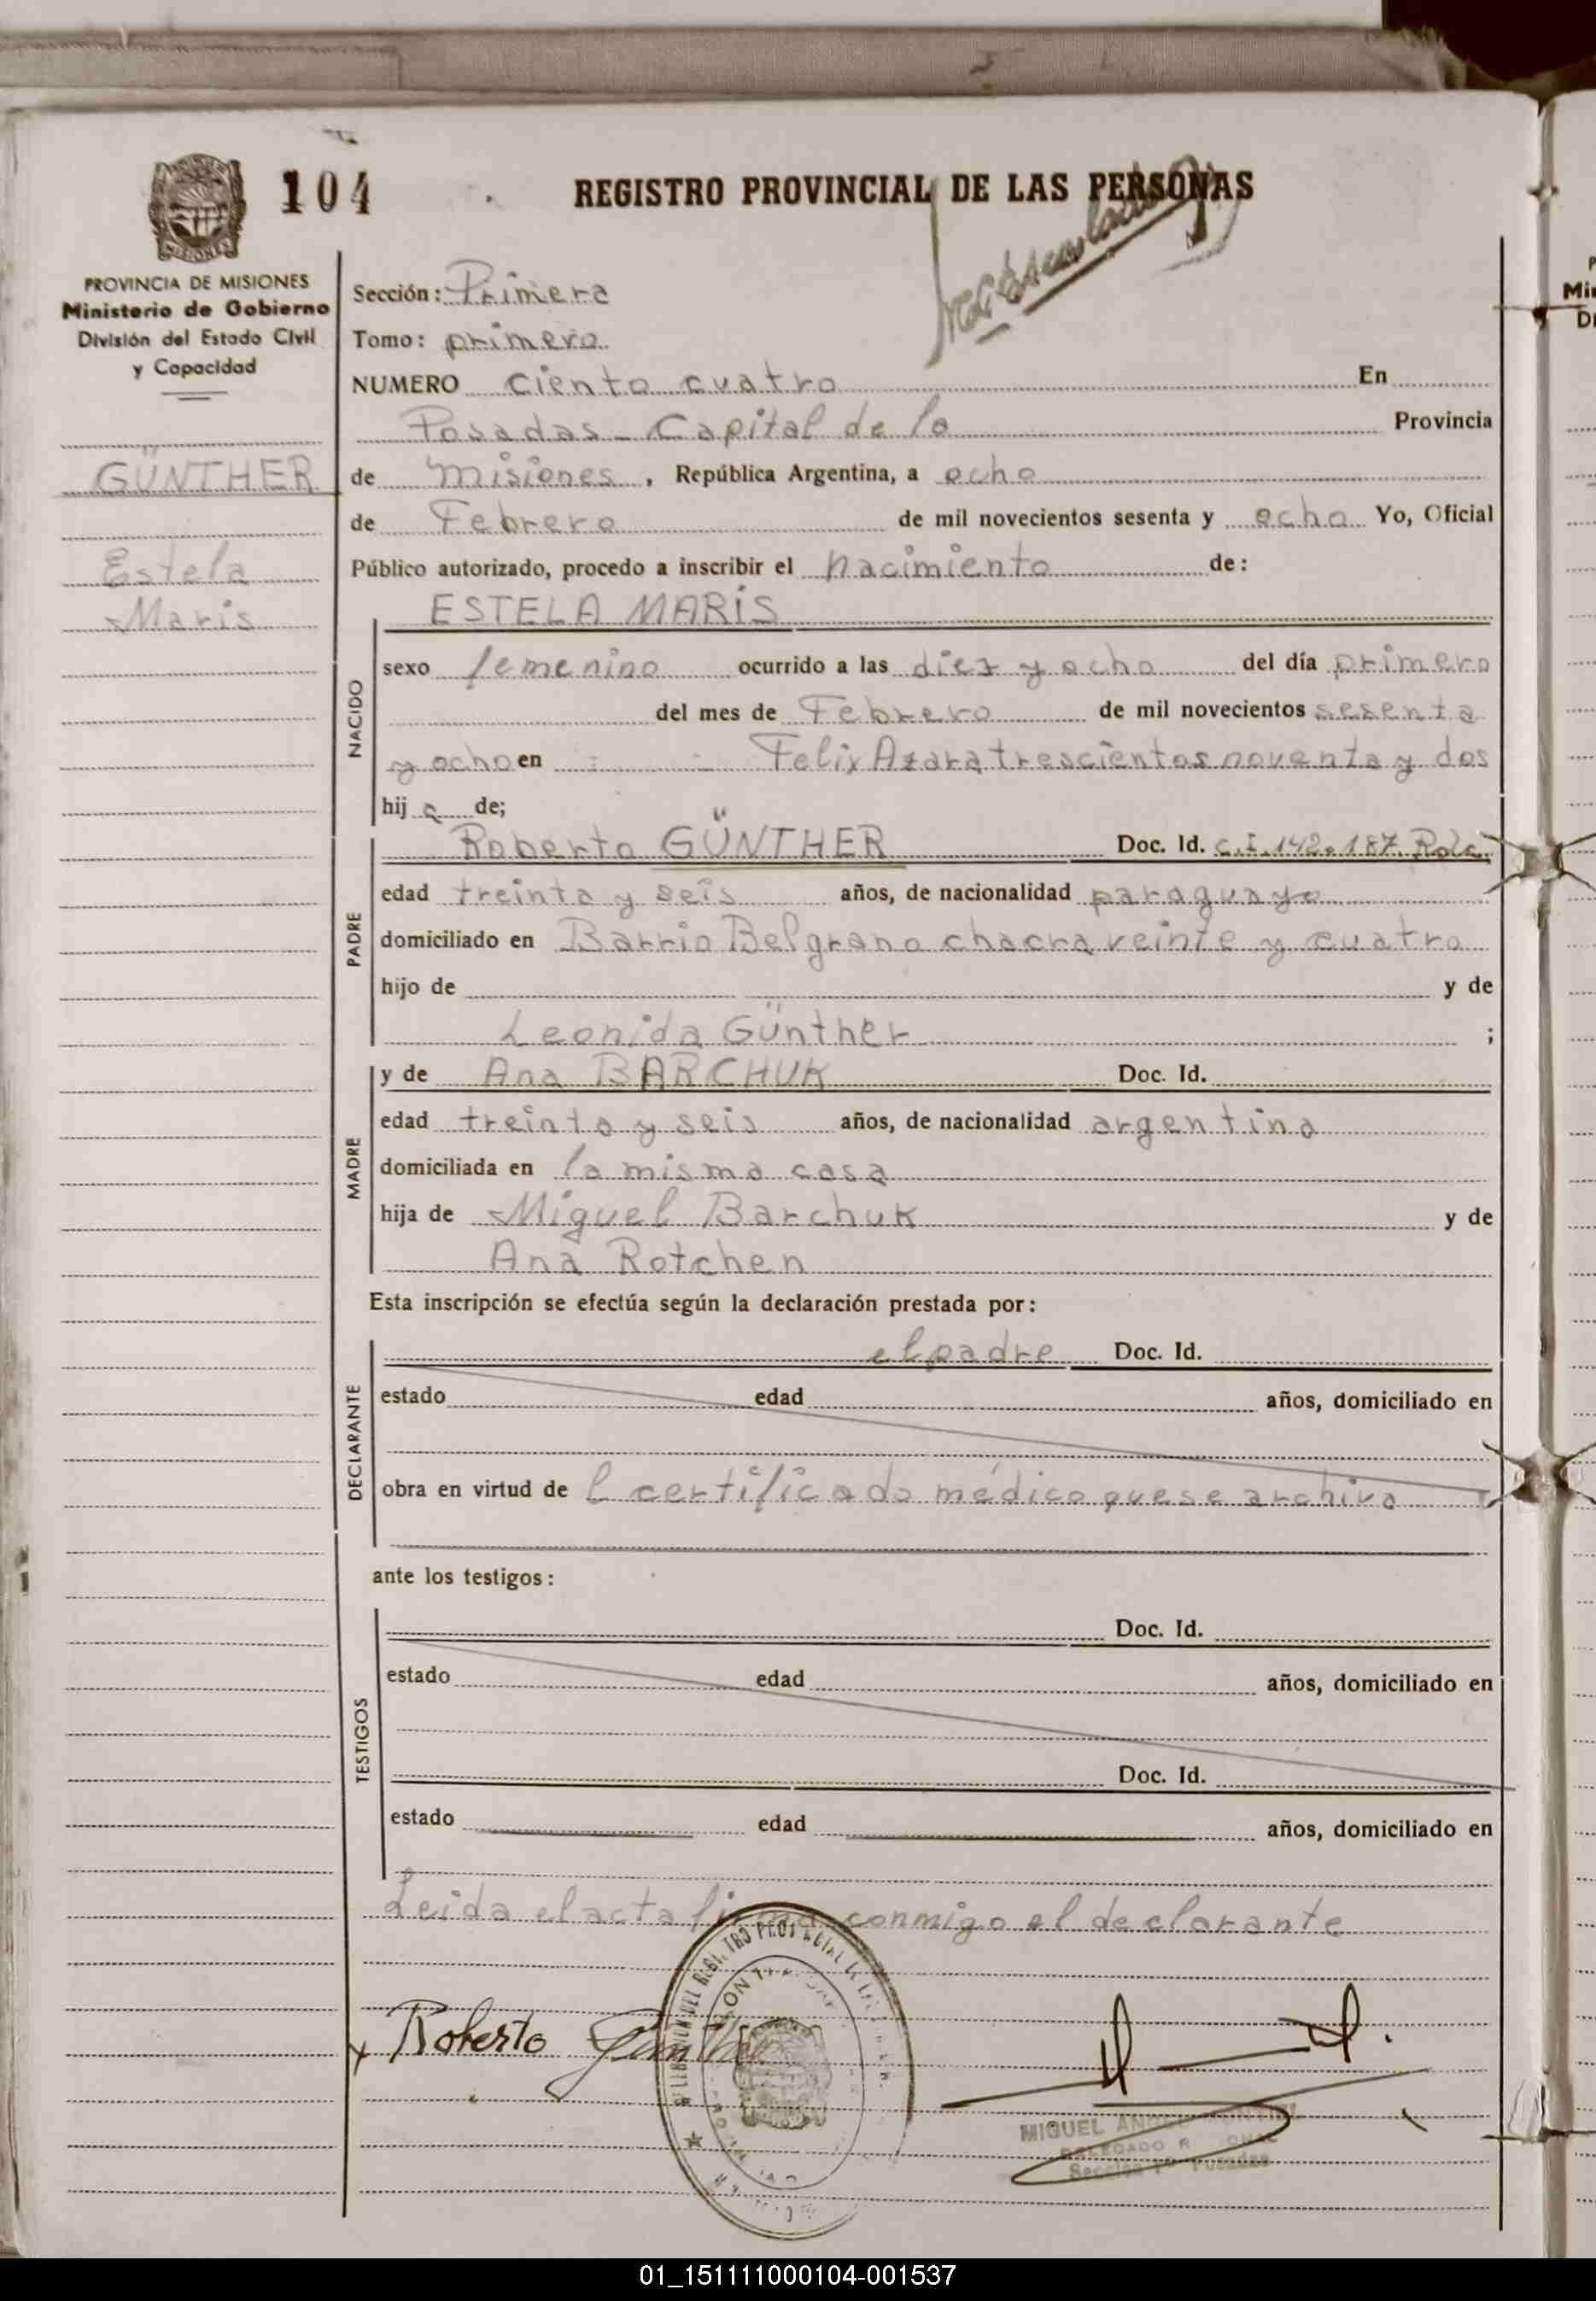 104
REGISTRO PROVINCIAL DE LAS PERSONAS
MISIONES
PROVINCIA DE MISIONES
Ministerio de Gobierno
División del Estado Civil
y Capacidad
GÜNTHER
Estela
Maris
Sección: Primera
Tomo: primero
NUMERO ciento cuatro En
Posadas - Capital de la Provincia
de Misiones, República Argentina, a ocho
de Febrero de mil novecientos sesenta y ocho Yo, Oficial
Público autorizado, procedo a inscribir el nacimiento de:
ESTELA MARIS
NACIDO
sexo femenino ocurrido a las diez y ocho del día primero
del mes de Febrero de mil novecientos sesenta
y ocho en Felix Azara trescientos noventa y dos
hija de;
PADRE
Roberto GÜNTHER Doc. Id. C.I. 142.187. Polc.
edad treinta y seis años, de nacionalidad paraguayo
domiciliado en Barrio Belgrano chacra veinte y cuatro
hijo de y de
Leonida Günther ;
MADRE
y de Ana BARCHUK Doc. Id.
edad treinta y seis años, de nacionalidad argentina
domiciliada en la misma casa
hija de Miguel Barchuk y de
Ana Rotchen
Esta inscripción se efectúa según la declaración prestada por:
DECLARANTE
el padre Doc. Id.
estado edad años, domiciliado en
obra en virtud de l certificado médico que se archiva
ante los testigos:
TESTIGOS
Doc. Id.
estado edad años, domiciliado en
Doc. Id.
estado edad años, domiciliado en
Leida el acta firma conmigo el declarante
Roberto Günther
MIGUEL
DELEGADO
Sección 1ª Posadas
01_151111000104-001537